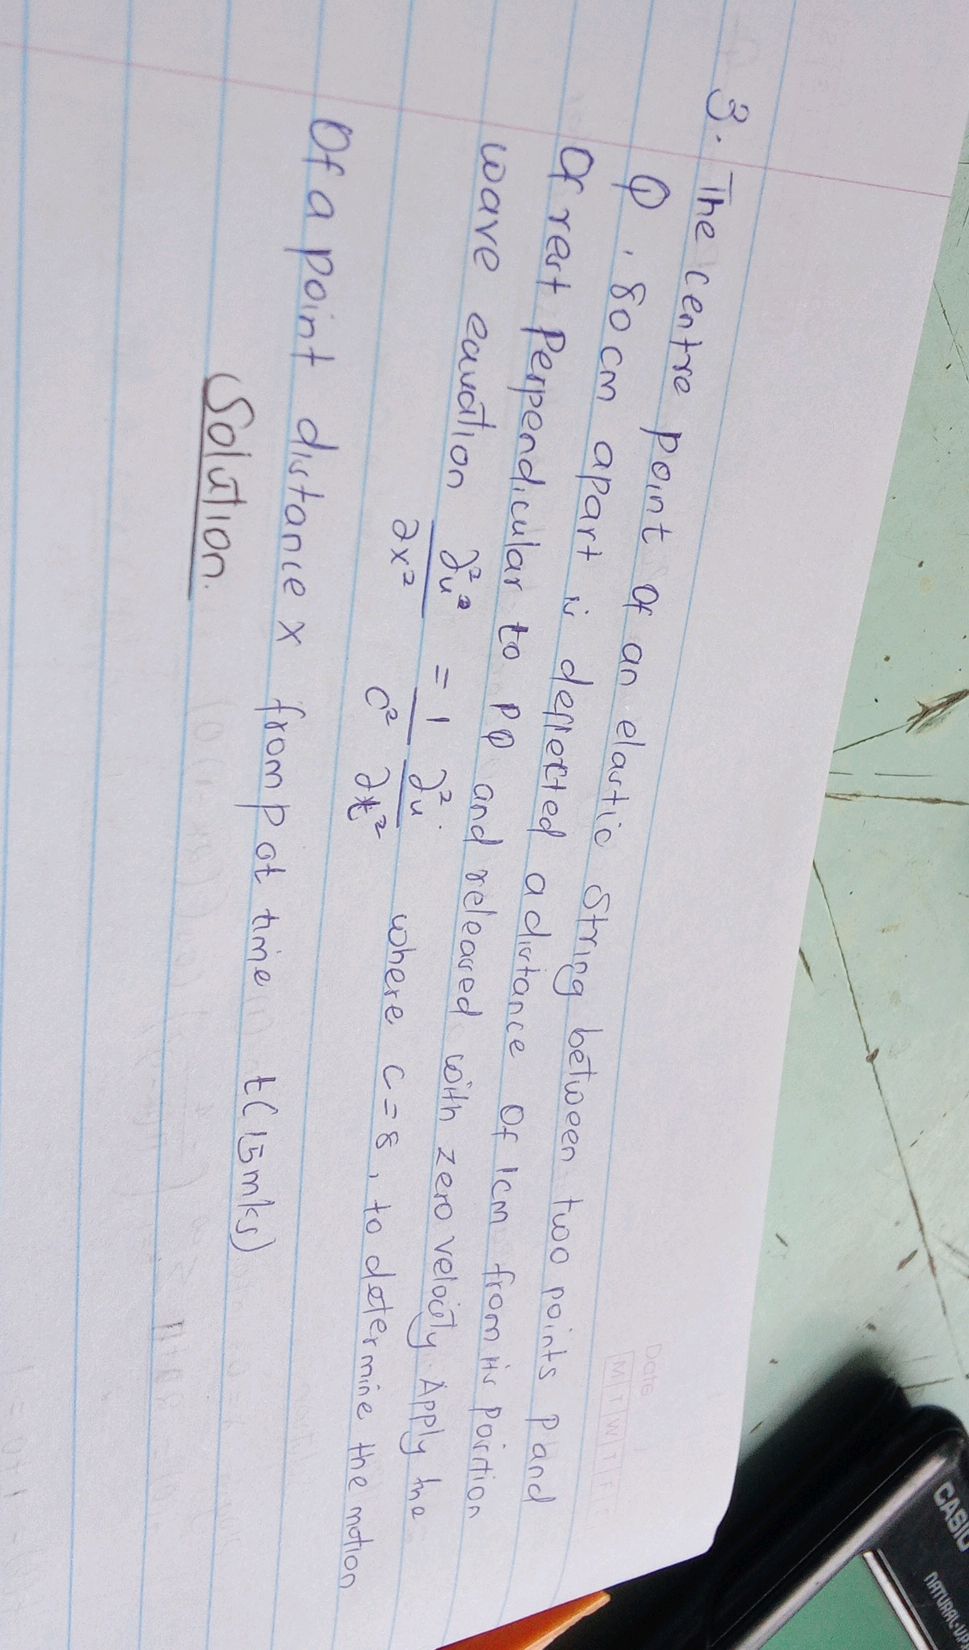 3. The centre point of an elastic string between two points P and
Q, 80cm apart is deflected a distance of 1cm from its position
of rest perpendicular to PQ and released with zero velocity. Apply the
wave equation ∂²u²/∂x² = 1/c² ∂²u/∂t² where c=8, to determine the motion
of a point distance x from P at time t (15mks)
Solution.
Date
M T W T F
CASIO
NATURAL-V